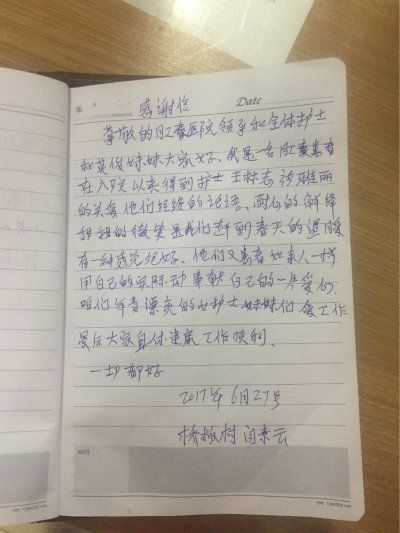 感谢信
Date
尊敬的肛肠医院领导和全体护士
和英俊妹妹大家好、我是一名肛肠患者
在入院以来得到护士王林志
的关爱他们轻轻的话语、耐心的解释
甜甜的微笑是我们感到春天的温暖
有一种感觉很好、他们对患者如亲人一样
用自己的实际动奉献自己的一片爱心
咱们年青漂亮的女护士妹妹们 工作
最后大家身体健康工作顺利、
一切都好
2017年6月27号
村 闫素云
NOTE